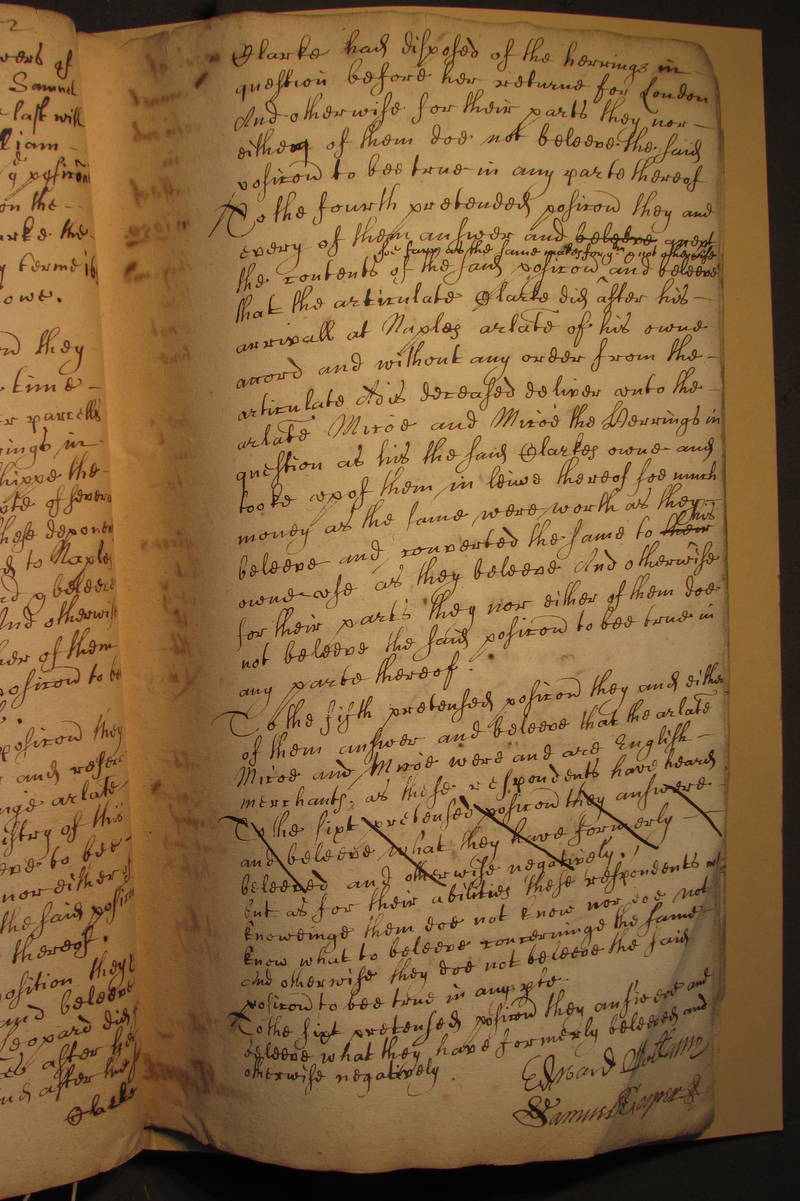 2
wers of
Samuel
last will
lliam
posicon
on the
arke the
terme is
owe.
they
time
er parcells
rings in
shippe the
pte of severa
these deponen
to Naples
beleeve
And otherwise
her of them
posicon to be
posicon they
and refer
arlate
istry of this
eve to bee
nor either of
the said posicon
thereof.
position they
and beleeve
Leopard did
after
and after his
Clarke
Clarke had disposed of the herrings in
question before her returne for London
And otherwise for their parts they nor
either of them doe not beleeve the said
posicon to bee true in any parte thereof
To the fourth pretended posicon they and
every of them answer and beleeve
soe farr as the same not otherwise
the contents of the said posicon and beleeve
that the articulate Clarke did after his
arrivall at Naples arlate of his owne
accord and without any order from the
articulate deceased deliver unto the
arlate Micoe and Micoe the Herrings in
question as his the said Clarkes owne and
tooke of them in leiwe thereof soe much
money as the same were worth as they
beleeve and converted the same to their his
owne use as they beleeve And otherwise
for their parts they nor either of them doe
not beleeve the said posicon to bee true in
any parte thereof.
To the fifth pretended posicon they and either
of them answer and beleeve that the arlate
Micoe and Micoe were and are English
merchants, as these respondents have heard
To the sixt pretended posicon they answere
and beleeve what they have formerly
beleeved and otherwise negatively.
but as for their abilities these respondents not
knoweinge them doe not know nor doe not
know what to beleeve concerninge the same
And otherwise they doe not beleeve the said
posicon to bee true in any pte.
To the sixt pretended posicon they answere and
beleeve what they have formerly beleeved and
otherwise negatively.
Edward
Samuel